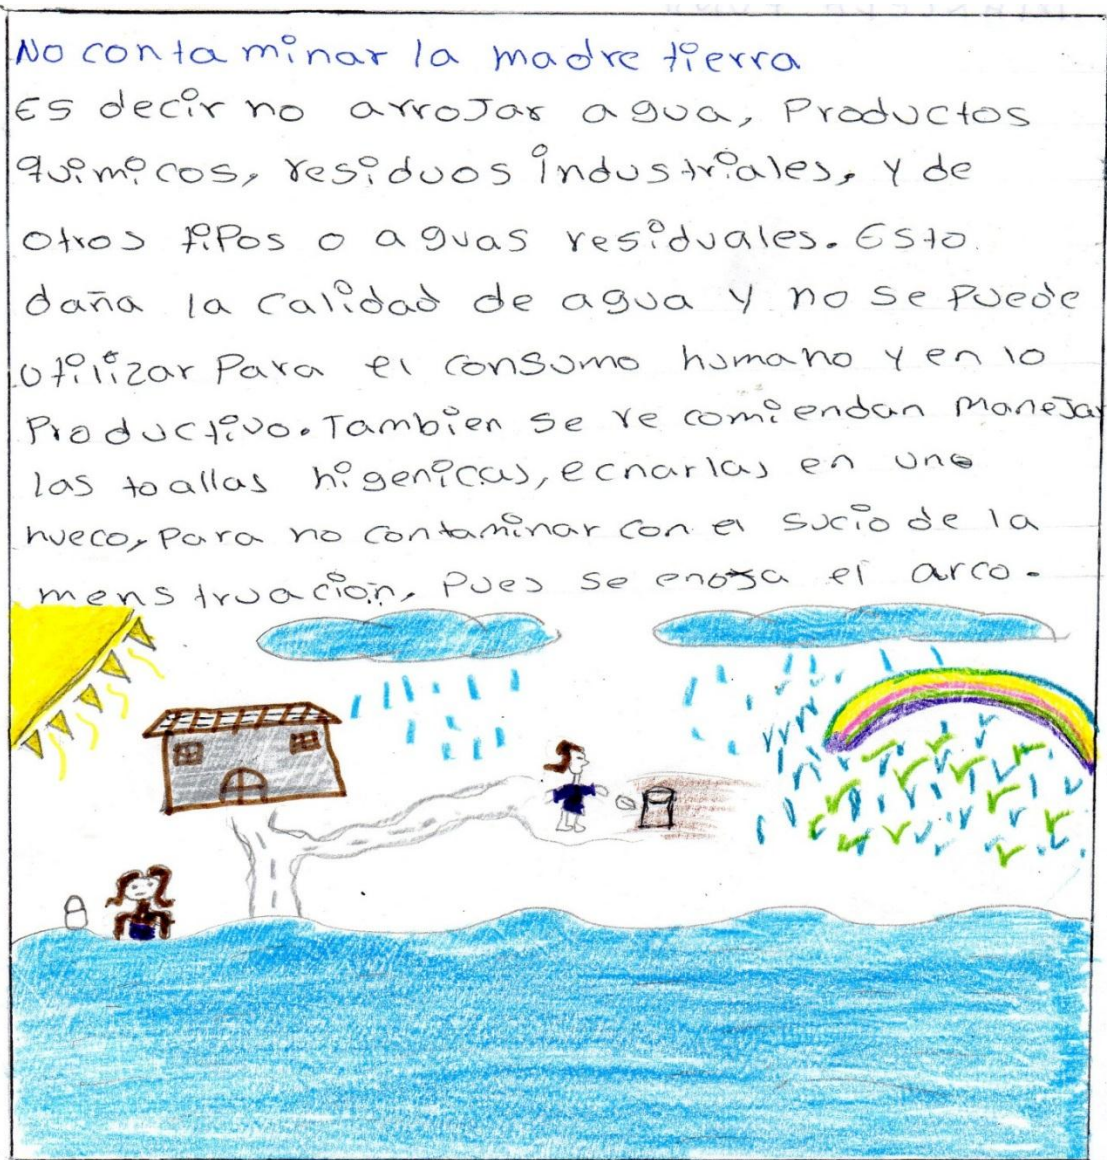 No contaminar la madre tierra
Es decir no arroJar agua, Productos
químicos, residuos industriales, y de
otros tipos o aguas residuales. Esto
daña la calidad de agua y no se puede
utilizar Para el consumo humano y en lo
Productivo. Tambien se recomiendan ManeJar
las toallas higenicas, ecnarlas en une
hueco, para no contaminar con el sucio de la
menstruacion, pues se enoja el arco.